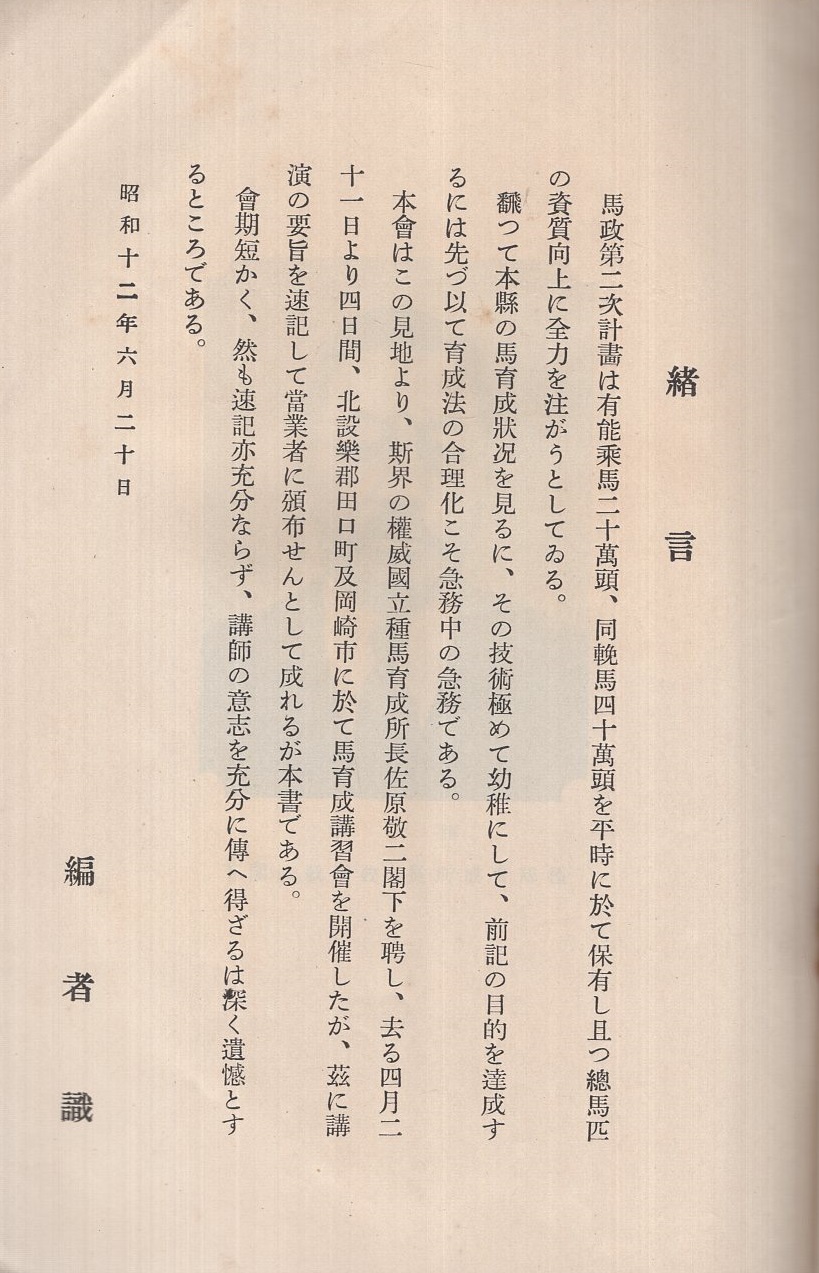 緒言
馬政第二次計畵は有能乘馬二十萬頭、同輓馬四十萬頭を平時に於て保有し且つ總馬匹
の資質向上に全力を注がうとしてゐる。
飜つて本縣の馬育成狀況を見るに、その技術極めて幼稚にして、前記の目的を達成す
るには先づ以て育成法の合理化こそ急務中の急務である。
本會はこの見地より、斯界の權威國立種馬育成所長佐原敬二閣下を聘し、去る四月二
十一日より四日間、北設樂郡田口町及岡崎市に於て馬育成講習會を開催したが、茲に講
演の要旨を速記して當業者に頒布せんとして成れるが本書である。
會期短かく、然も速記亦充分ならず、講師の意志を充分に傳へ得ざるは深く遺憾とす
るところである。
昭和十二年六月二十日
編者識